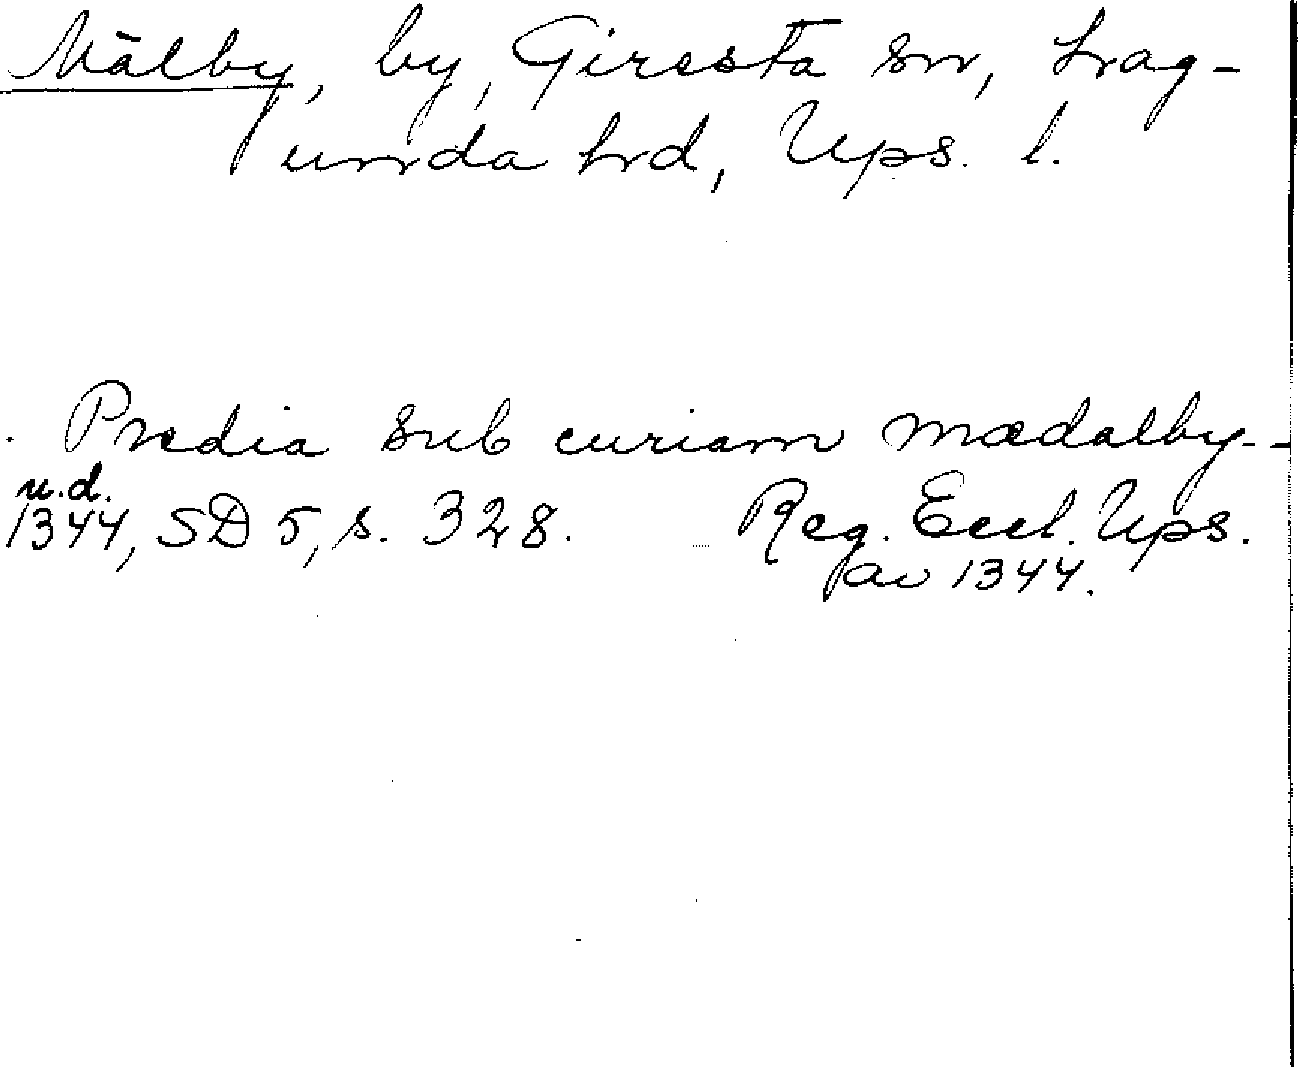 Mälby, by, Giresta sn, Lag-
unda hd, Ups. l.
Prædia sub curiam mædalby--
u.d.
1344, SD 5, s. 328. Reg. Eccl. Ups.
av 1344.